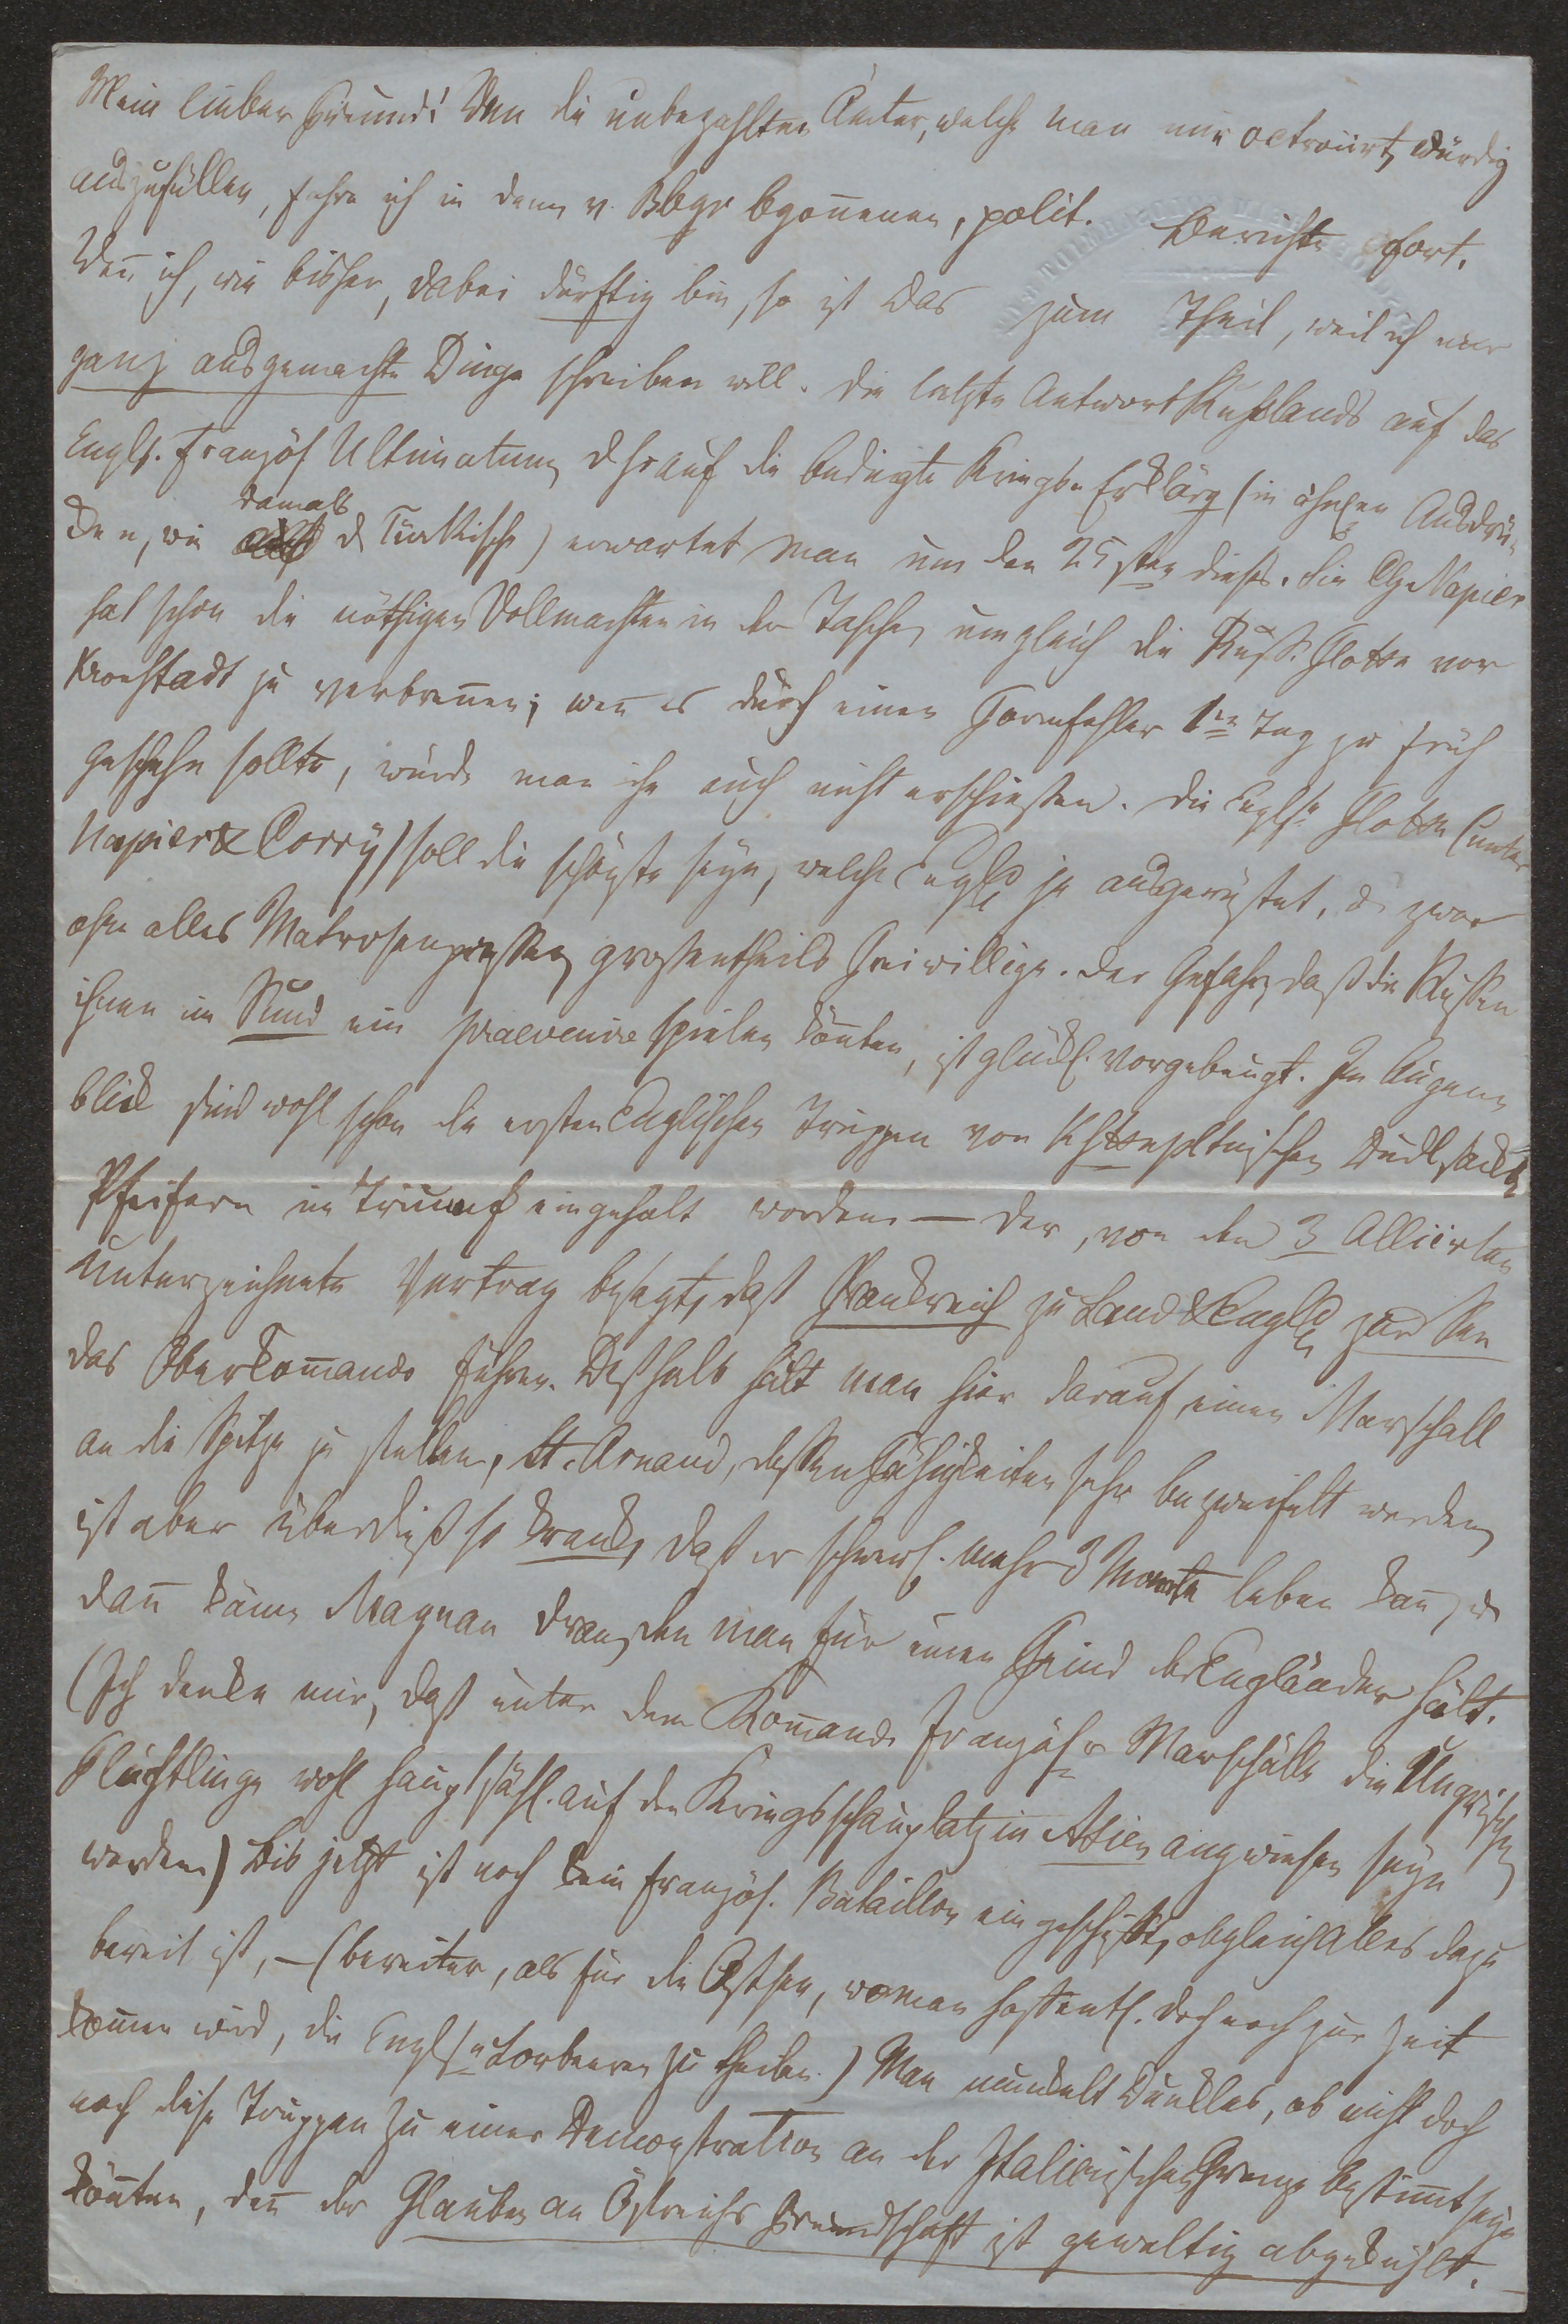 Mein lieber Freund! Um die unbezahlten Ämter, welche man mir octroiirt, würdig
auszufüllen, fahre ich in dem v. Bbgr begonnenen, polit. Berichte fort.
Wen̄ ich, wie bisher, dabei dürftig bin, so ist das zum Theil, weil ich nur
ganz ausgemachte Dinge schreiben will. Die letzte Antwort Rußlands auf das
Engl. Französ Ultimatum, & hierauf die bedingte Kriegs Erklärg (in ähnlichen Ausdrü-
cken, wie damals d Türkische) erwartet man um den 25sten dieses. Sir Ch. Napier
hat schon die nöthigen Vollmachten in der Tasche, um gleich die Russ. Flotte vor
Kronstadt zu verbren̄en; wen̄ es durch einen Formfehler 1en Tag zu früh
geschehn sollte, würde man ihn auch nicht erschießen. Die Englse Flotte (unter
Napier & Corry) soll die schönste seyn, welche Engld je ausgerüstet, & zwar
ohne alles Matrosenpressen, grossentheils Freiwillige. Der Gefahr, daß die Russen
ihnen im Sund ein praevenire spielen kön̄ten, ist glückl. vorgebeugt. Im Augen-
blick sind wohl schon die ersten Englischen Truppen von Dudelsack
Pfeifern im Triumf eingeholt worden. — Der, von den 3 Alliirten
unterzeichnete Vertrag besagt, daß Frankreich zu Land & Engld zur See
das Oberkom̄ando führen. Deßhalb hält man hier darauf, einen Marschall
an die Spitze zu stellen, St. Arnaud, dessen Fähigkeiten sehr bezweifelt werden,
ist aber überdieß so krank, daß er schwerl. mehr 3 Monate leben kan̄, &
dan̄ käme Magnan dran, den man für einen Feind der Engländer hält.
(Ich denke mir, daß unter dem Kom̄ando Französr Marschälle die Ungrischen
Flüchtlinge wohl hauptsächl. auf den Kriegsschauplatz in Asien angewiesen seyn
werden.) Bis jetzt ist noch kein französ. Bataillon eingeschifft, obgleich Alles dazu
bereit ist, — (bereiter, als für die Ostsee, wo man hoffentl. doch noch zur Zeit
kom̄en wird, die Englsn Lorbeeren zu theilen.) Man munkelt Dunkles, ob nicht doch
noch diese Truppen zu einer Demonstration an der Italienischen Grenze bestim̄t seyn
kön̄ten, den̄ der Glauben an Östreichs Freundschaft ist gewaltig abgekühlt. —